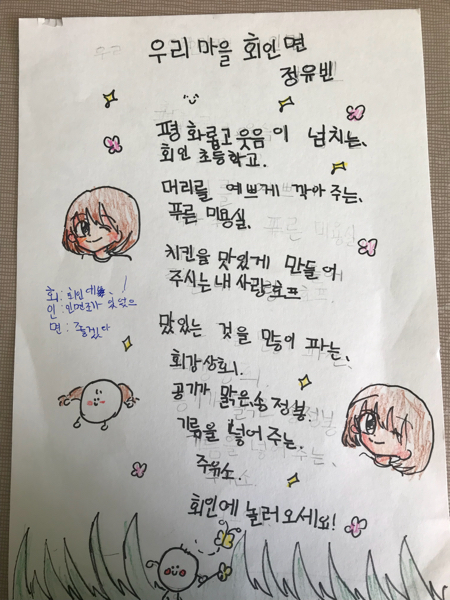 우리 마을 회인면
정유빈
평화롭고 웃음이 넘치는,
회인 초등학교.
머리를 예쁘게 깍아 주는,
푸른 미용실.
치킨을 맛있게 만들어
주시는 내 사랑 호프
맛있는 것을 많이 파는,
회강상회.
공기가 맑은 송정봉.
기름을 넣어 주는,
주유소.
회인에 놀러 오세요!
회: 회인에
인:
면: 좋겠다